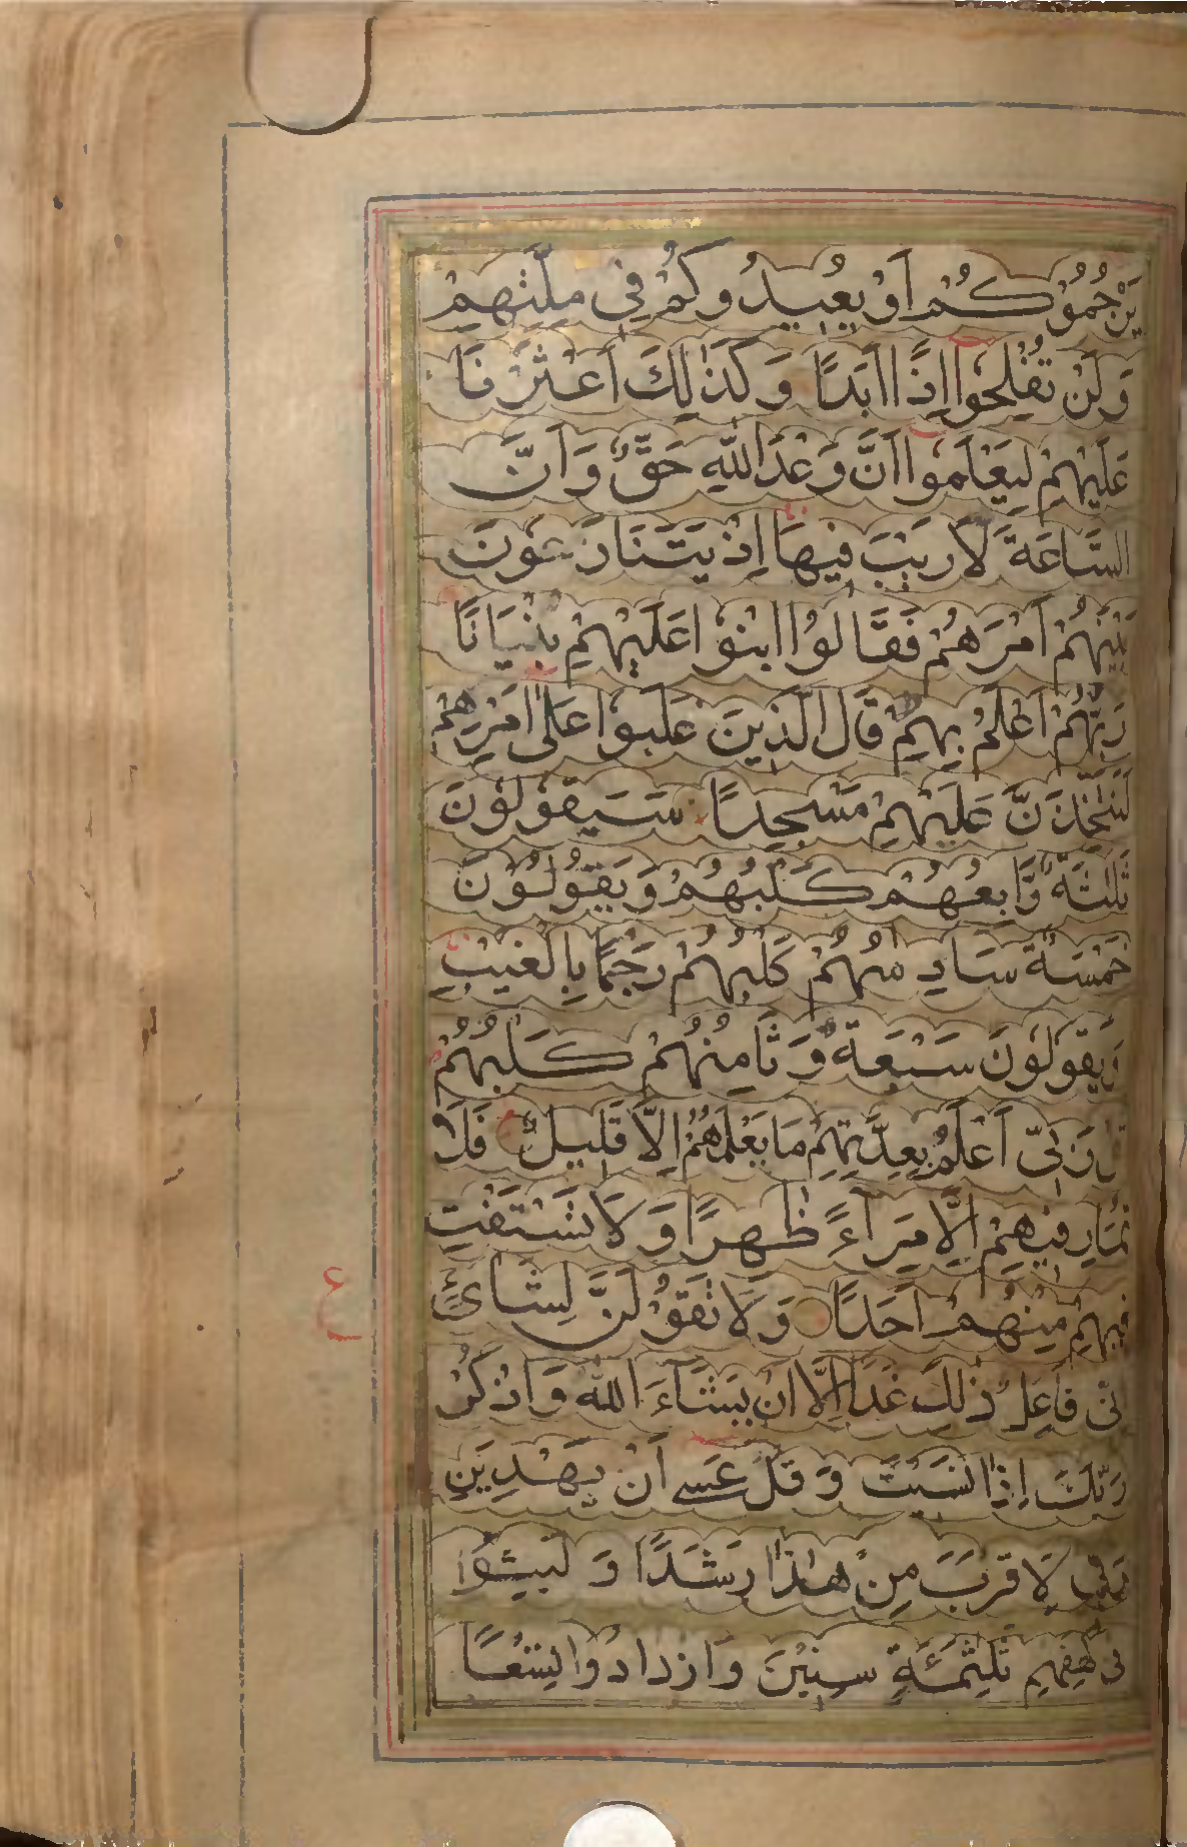 يَرْجُمُوْكُمْ اَوْ يُعِيدُوكُمْ فِي مِلَّتِهِمْ
وَلَنْ تُفْلِحُوا اِذًا اَبَدًا وَكَذٰلِكَ اَعْثَرْنَا
عَلَيْهِمْ لِيَعْلَمُوا اَنَّ وَعْدَ اللّٰهِ حَقٌّ وَاَنَّ
السَّاعَةَ لَا رَيْبَ فِيهَا اِذْ يَتَنَازَعُونَ
بَيْنَهُمْ اَمْرَهُمْ فَقَالُوا ابْنُوا عَلَيْهِمْ بُنْيَانًا
رَبُّهُمْ اَعْلَمُ بِهِمْ قَالَ الَّذِينَ غَلَبُوا عَلٰى اَمْرِهِمْ
لَنَتَّخِذَنَّ عَلَيْهِمْ مَسْجِدًا سَيَقُولُونَ
ثَلٰثَةٌ رَّابِعُهُمْ كَلْبُهُمْ وَيَقُولُوْنَ
خَمْسَةٌ سَادِسُهُمْ كَلْبُهُمْ رَجْمًا بِالْغَيْبِ
وَيَقُولُونَ سَبْعَةٌ وَثَامِنُهُمْ كَلْبُهُمْ
قُلْ رَبِّى اَعْلَمُ بِعِدَّتِهِمْ مَا يَعْلَمُهُمْ اِلَّا قَلِيلٌ فَلَا
تُمَارِ فِيْهِمْ اِلَّا مِرَاءً ظٰهِرًا وَلَا تَسْتَفْتِ
فِيهِمْ مِنْهُمْ اَحَدًا وَلَا تَقُوْلَنَّ لِشَایْءٍ
نِّى فَاعِلٌ ذٰلِكَ غَدًا اِلَّا اَنْ يَشَآءَ اللّٰه وَاذْكُرْ
رَبَّكَ اِذَا نَسِيتَ وَقُلْ عَسٰے اَنْ يَهْدِيَنِ
رَبِّى لِاَقْرَبَ مِنْ هٰذَا رَشَدًا وَ لَبِثُوا
فى كَهْفِهِمْ ثَلٰثَمِئَةٍ سِنِيْنَ وَازْدَادُوا تِسْعًا
ع